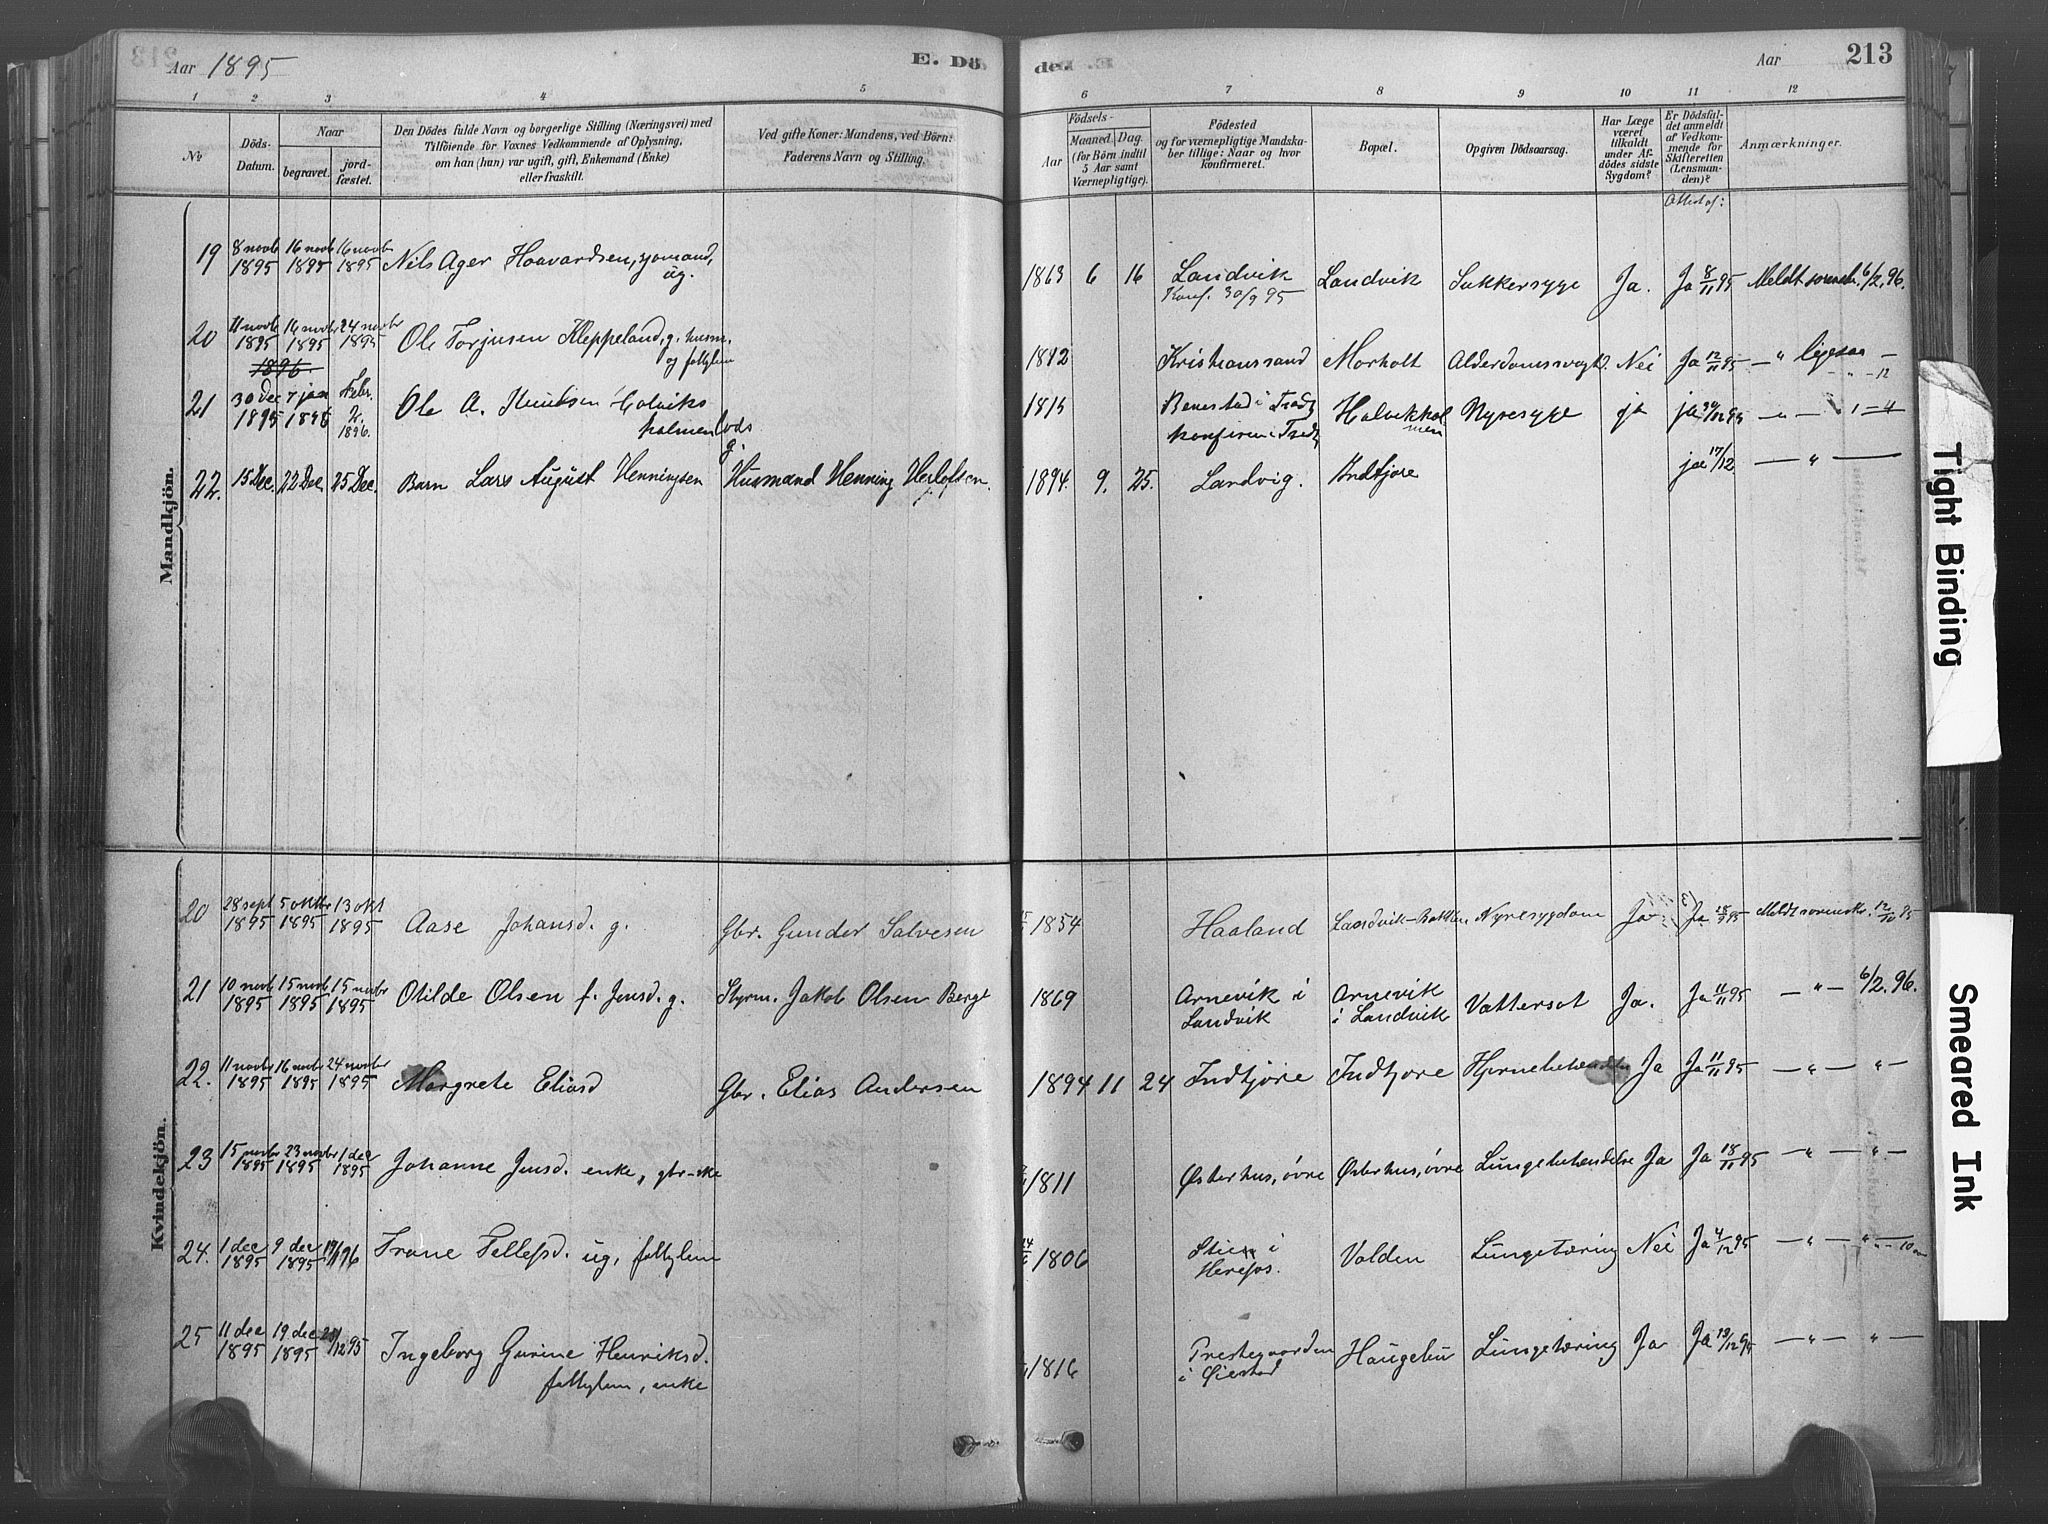 213
Aar 1895
E. Dö
de
Aar
213
1 2 3 4 5 6 7 8 9 10 11 12
No
Döds-
Datum.
Naar
begravet.
jord-
fæstet.
Den Dödes fulde Navn og borgerlige Stilling (Næringsvei) med
Tilföiende for Voxnes Vedkommende af Oplysning,
om han (hun) var ugift, gift, Enkemand (Enke)
eller fraskilt.
Ved gifte Koner: Mandens, ved Börn:
Faderens Navn og Stilling.
Födsels-
Aar
Maaned. Dag.
(for Börn indtil
5 Aar samt
Værnepligtige).
Födested
og for værnepligtige Mandska-
ber tillige: Naar og hvor
konfirmeret.
Bopæl.
Opgiven Dödsaarsag.
Har Læge
været
tilkaldt
under Af-
dödes sidste
Sygdom?
Er Dödsfal-
det anmeldt
af Vedkom-
mende for
Skifteretten
(Lensman-
den)?
Anmærkninger.
Attest af:
Mandkjön.
19 8 novb 1895 16 novb 1895 16 novbr 1895 Nils Ager Haavardsen, sjømand, ug. 1863 6 16 Landvik Konf. 30/9 95 Landvik Sukkersyge Ja. Ja 8/11 95 Meldt sorenskr. 6/2. 96.
20 11 novb 1895 16 novbr 1895 24 novbr 1895 Ole Torjusen Kleppeland, g. husm. og fattglem 1812 Kristianssand Morholt Alderdomssvagh. Nei Ja 12/11 95 — " ligesaa — 12
1896.
21 30 Dec 1895 7 jan 1896 Febr. 2. 1896. Ole A. Knudsen Holviks holmen Lods g 1815 Benestad i Holvikkol men Nyresyge ja ja 30/12 95 — " — 1 = 4
22. 15 Dec. 22 Dec. 25 Dec. Barn Lars August Henningsen Husmand Henning Herlofsen. 1894. 9. 25. Landvig. Indtjore jae 17/12 — " —
Kvindekjön.
20 28 sept 1895 5 oktbr 1895 13 okt 1895 Aase Johansd. g. Gbr. Gunder Salvesen 1854 Haaland Landvik-Bakken Nyresygdom Ja Ja 18/9 95 Meldt sorenskr. 12/10 95
21 10 novb 1895 15 novb 1895 15 novbr 1895 Otilde Olsen f. Jensd. g. Styrm. Jakob Olsen Berge 1869 Arnevik i Landvik Arnevik i Landvik Vattersot Ja. Ja 11/11 95 — " — 6/2. 96.
22. 11 novbr 1895 16 novbr 1895 24 novbr 1895 Margrete Eliasd Gbr. Elias Andersen 1894 11 24 Indtjöre Indtjore Hjernebetændelse Ja Ja 11/11 95 — " — " —
23 15 novbr 1895 23 novbr 1895 1 dec 1895 Johanne Jensd. enke, gbr-ke 1811 Østerhus, övre Østerhus, övre Lungebetændelse Ja Ja 18/11 95 — " — " —
24. 1 dec 1895 9 dec 1895 19/1 96 Trone Tellefsd. ug, fattglem 1806 Stien i Herefos. Valden Lungetæring Nei Ja 4/12 95 — " — " — 10
25 11 dec 1895 19 dec 1895 /12 95 Ingeborg Gurine Henriksd. fattglem, enke 1816 Prestegaarden i Øiestad Haugebu Lungetæring Ja Ja 13/12 95 — " — " —
Tight Binding
Smeared Ink